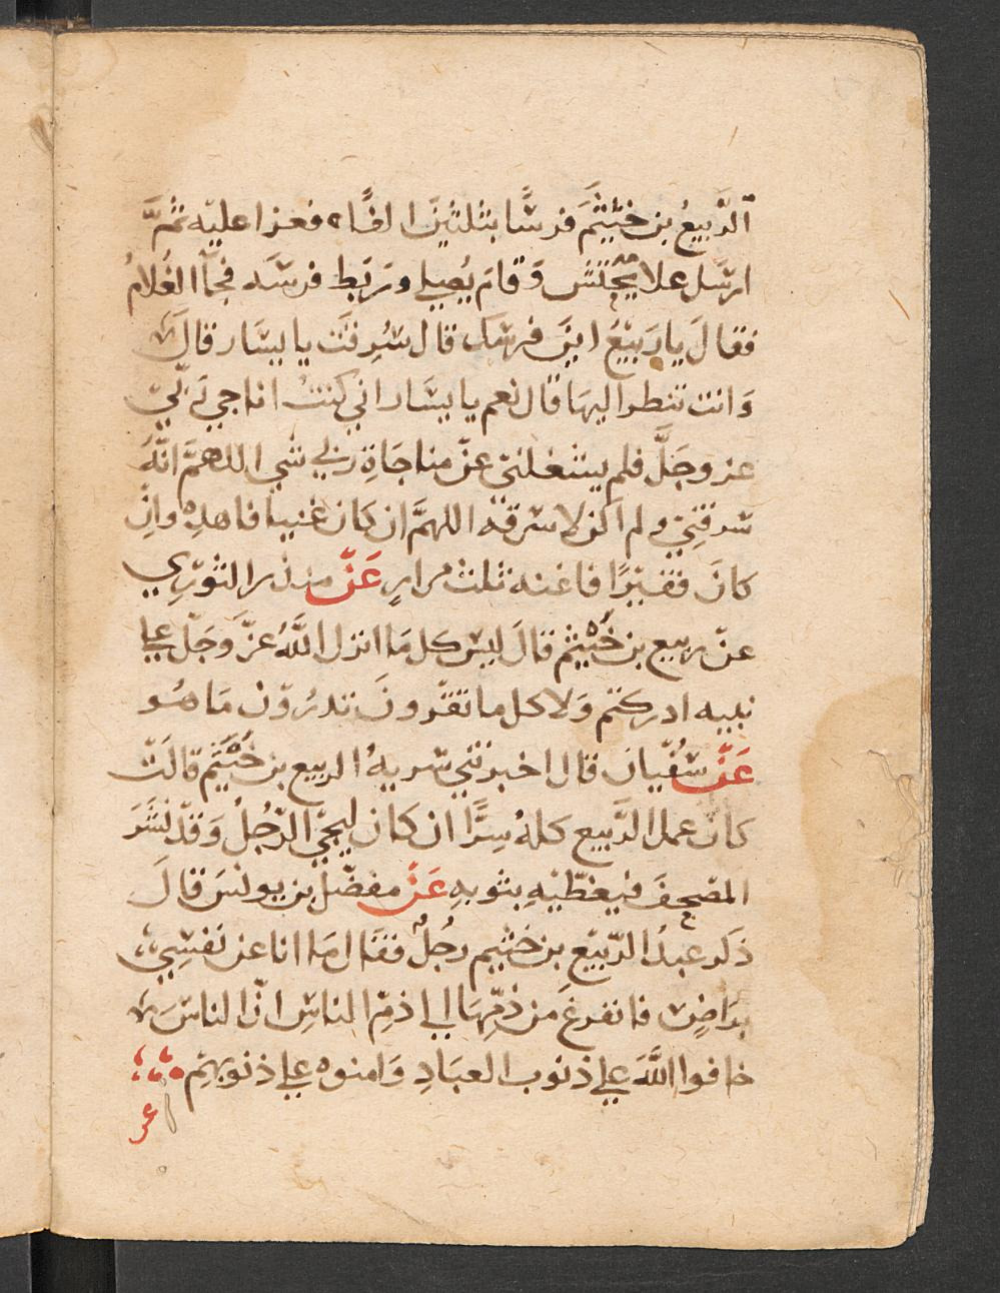 الرَّبيعُ بن خثيثَم فرسًا بثلثين الفًا فعزا عليه ثمَّ
ارسَل غلامه يحتش وَقامَ يُصلي ورَبَط فرسَه فجآ الغُلامُ
فقالَ يا رَبيعُ اينَ فرسك قال سُرِقَت يا يسَار قالَ
وَانت تنظر اليهَا قال نعم يا يسَار اني كنتُ اناجي رَبّي
عز وجَلَّ فلم يشغلني عن مناجَاةِ ربي شي اللهمَّ انهُ
سرقني ولم اكن لاسرقه اللهمَّ ان كَان غنيا فاهدِه وان
كانَ فقيرًا فاغنه ثلث مرارٍ عَنْ منذر الثوري
عن ربيع بن خُثيثم قالَ ليس كل مَا انزل اللَّهُ عزّ وَجَلّ علي
نبيه ادركتم وَلا كل ما تقرّونَ تدرُون مَا هُو
عَنْ سُفيَان قال اخبرتني سريهُ الربيع بن خُثَيْثَم قالَت
كانَ عمل الرَّبيع كلهُ سِرًّا ان كان ليجيُ الرّجلُ وَقَد نشَرَ
المصحفَ فيغطّيْهِ بثوبهِ عَنْ مفضّل بن يونسَ قالَ
ذكر عبدُ الرّبيْع بن خثيم رجُلٌ فقَال مَا انا عن نَفسِي
براضٍ فاتفرغ من ذمِّهَا الي ذمِّ الناسِ انّ الناسَ
خافوا اللَّهَ علي ذنوب العبَادِ وَامنوه علي ذنوبهم